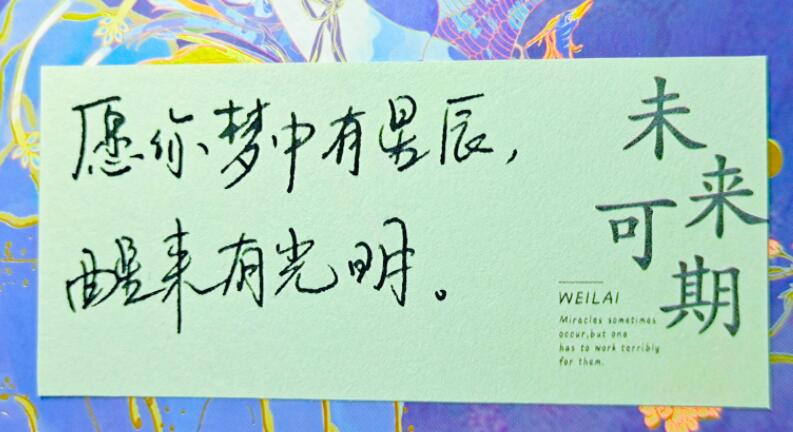 愿你梦中有星辰,
醒来有光明。
未来
可期
WEILAI
Miracles sometimes
occur,but one
has to work terribly
for them.